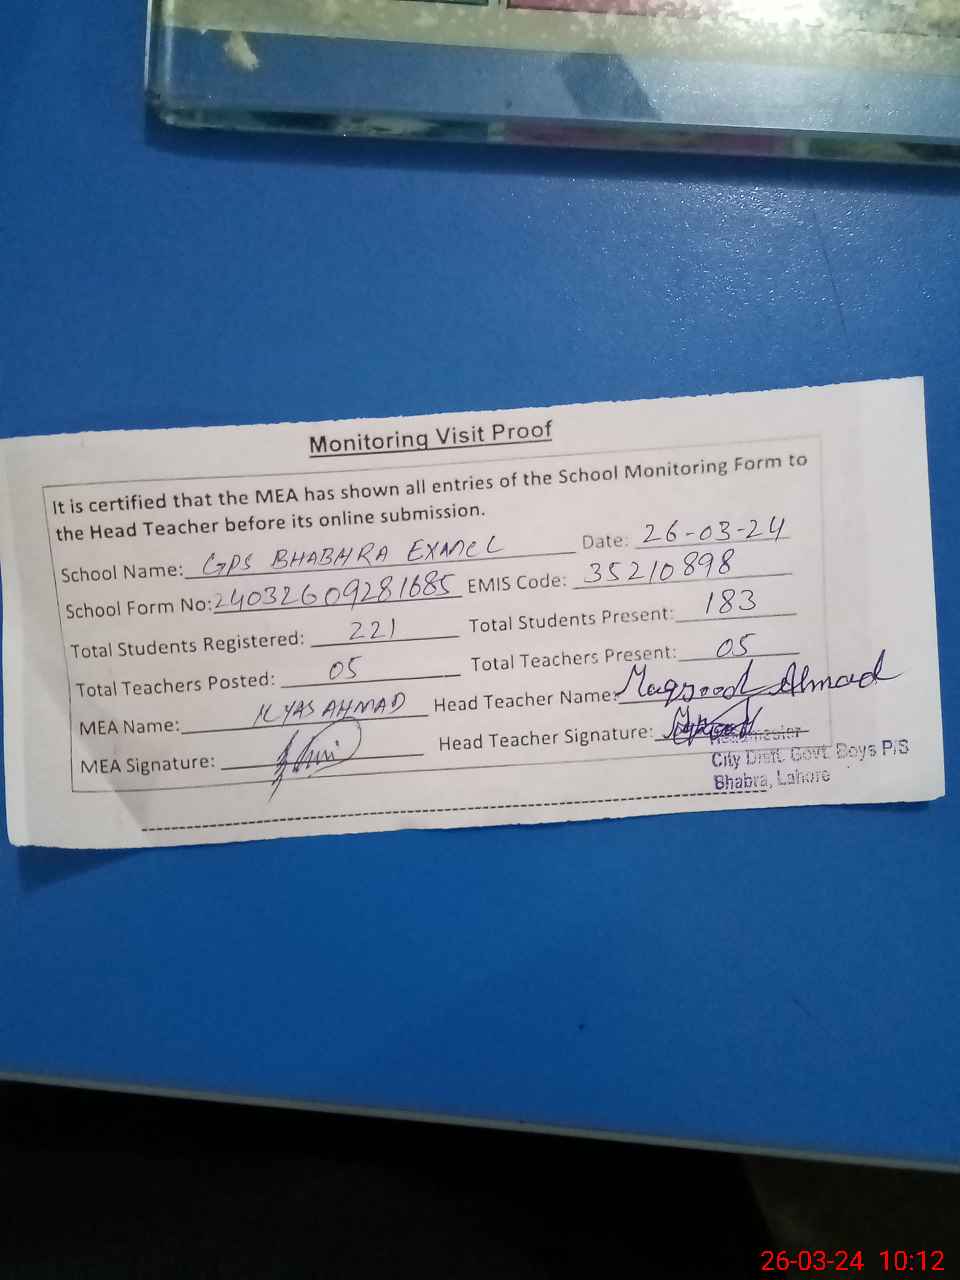 Monitoring Visit Proof
It is certified that the MEA has shown all entries of the School Monitoring Form to
the Head Teacher before its online submission.
School Name: GPS BHABHRA Date: 26-03-24
School Form No: 24032609281685 EMIS Code: 35210898
Total Students Registered: 221 Total Students Present: 183
Total Teachers Posted: 05 Total Teachers Present: 05
MEA Name: ILYAS AHMAD Head Teacher Name: Maqsood Ahmad
MEA Signature: Head Teacher Signature:
Headmaster
City Distt. Govt. Boys P/S
Bhabra, Lahore
26-03-24 10:12